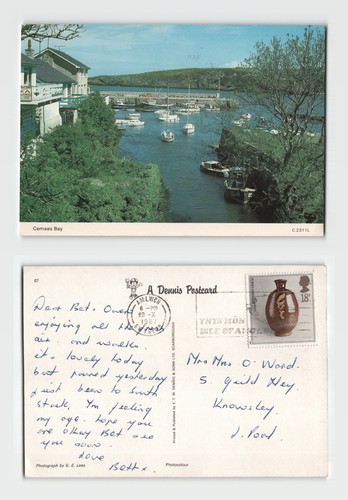 Cemaes Bay
C.2311L
67
A Dennis Postcard
AMLWCH
6 - PM
1987
YNYS MÔN
ISLE OF ANGLESEY
18p
Dear Bet + Owen
enjoying all the
air and
it is lovely today
but rained yesterday
just been to South
Stack, I'm feeling
my age. hope you
are okay Bet see
you soon.
love
Bett x.
Mr + Mrs O. Wood.
5.
Knowsley.
L. Pool
Photograph by G. E. Lees
Photocolour
Printed & Published by E. T. W. DENNIS & SONS LTD. SCARBOROUGH